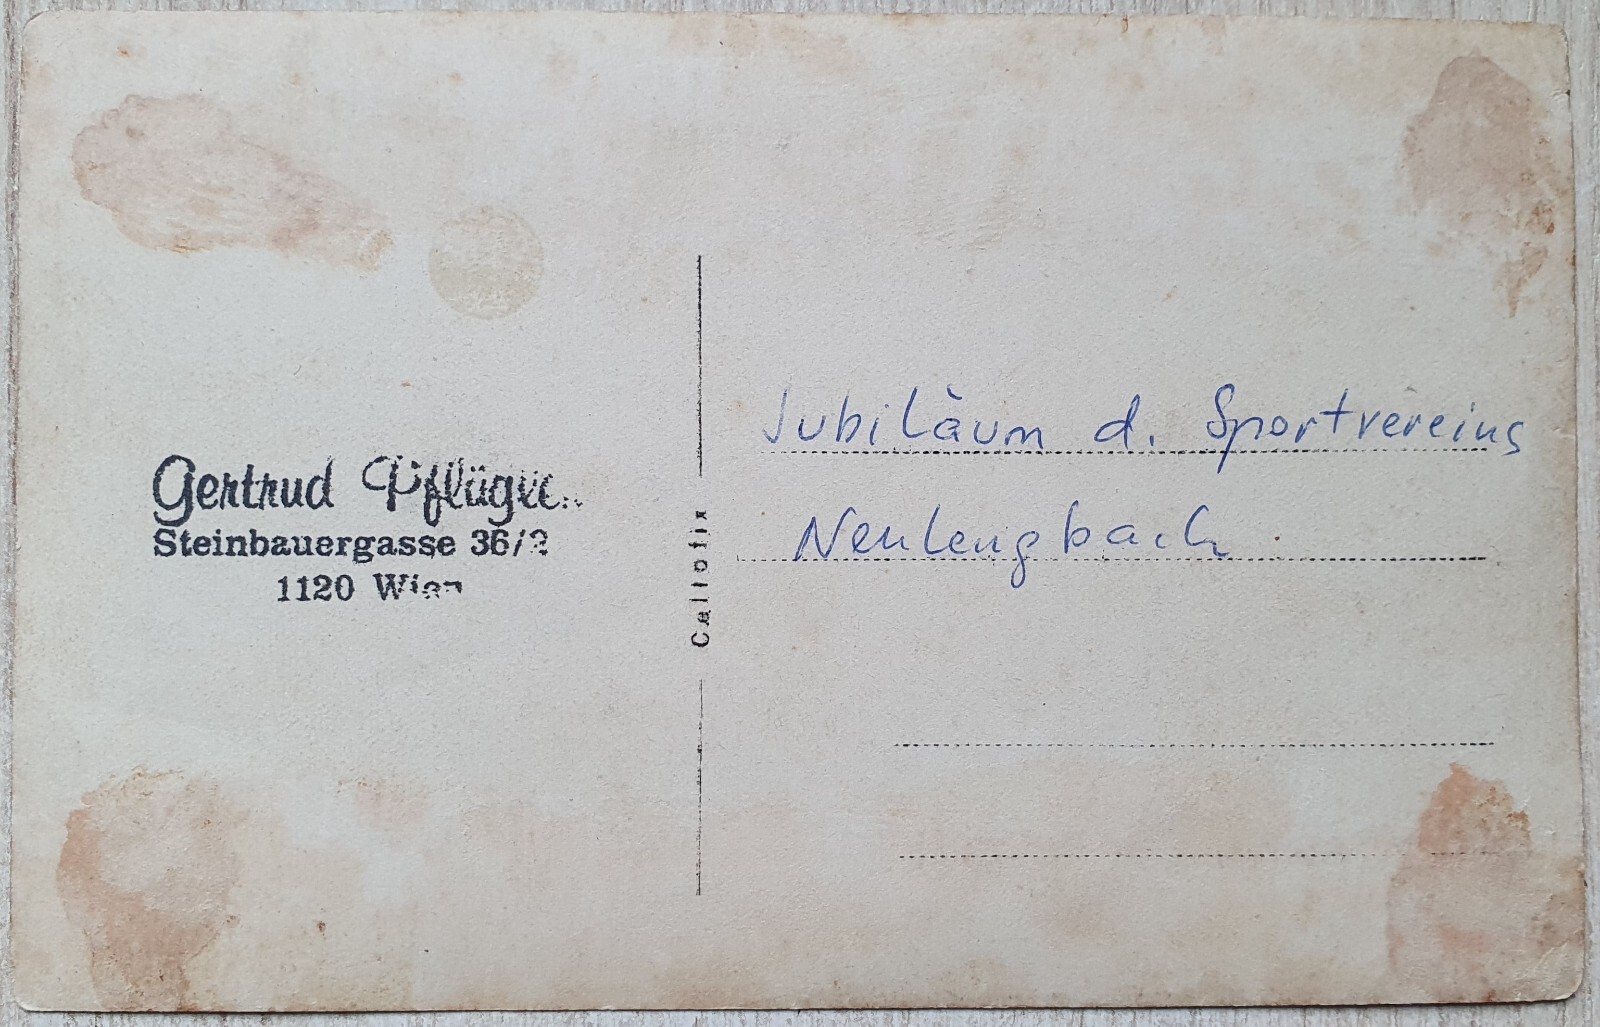 Gertrud
Steinbauergasse 36/2
1120 Wien
Callofix
Jubiläum d. Sportvereins
Neulengbach